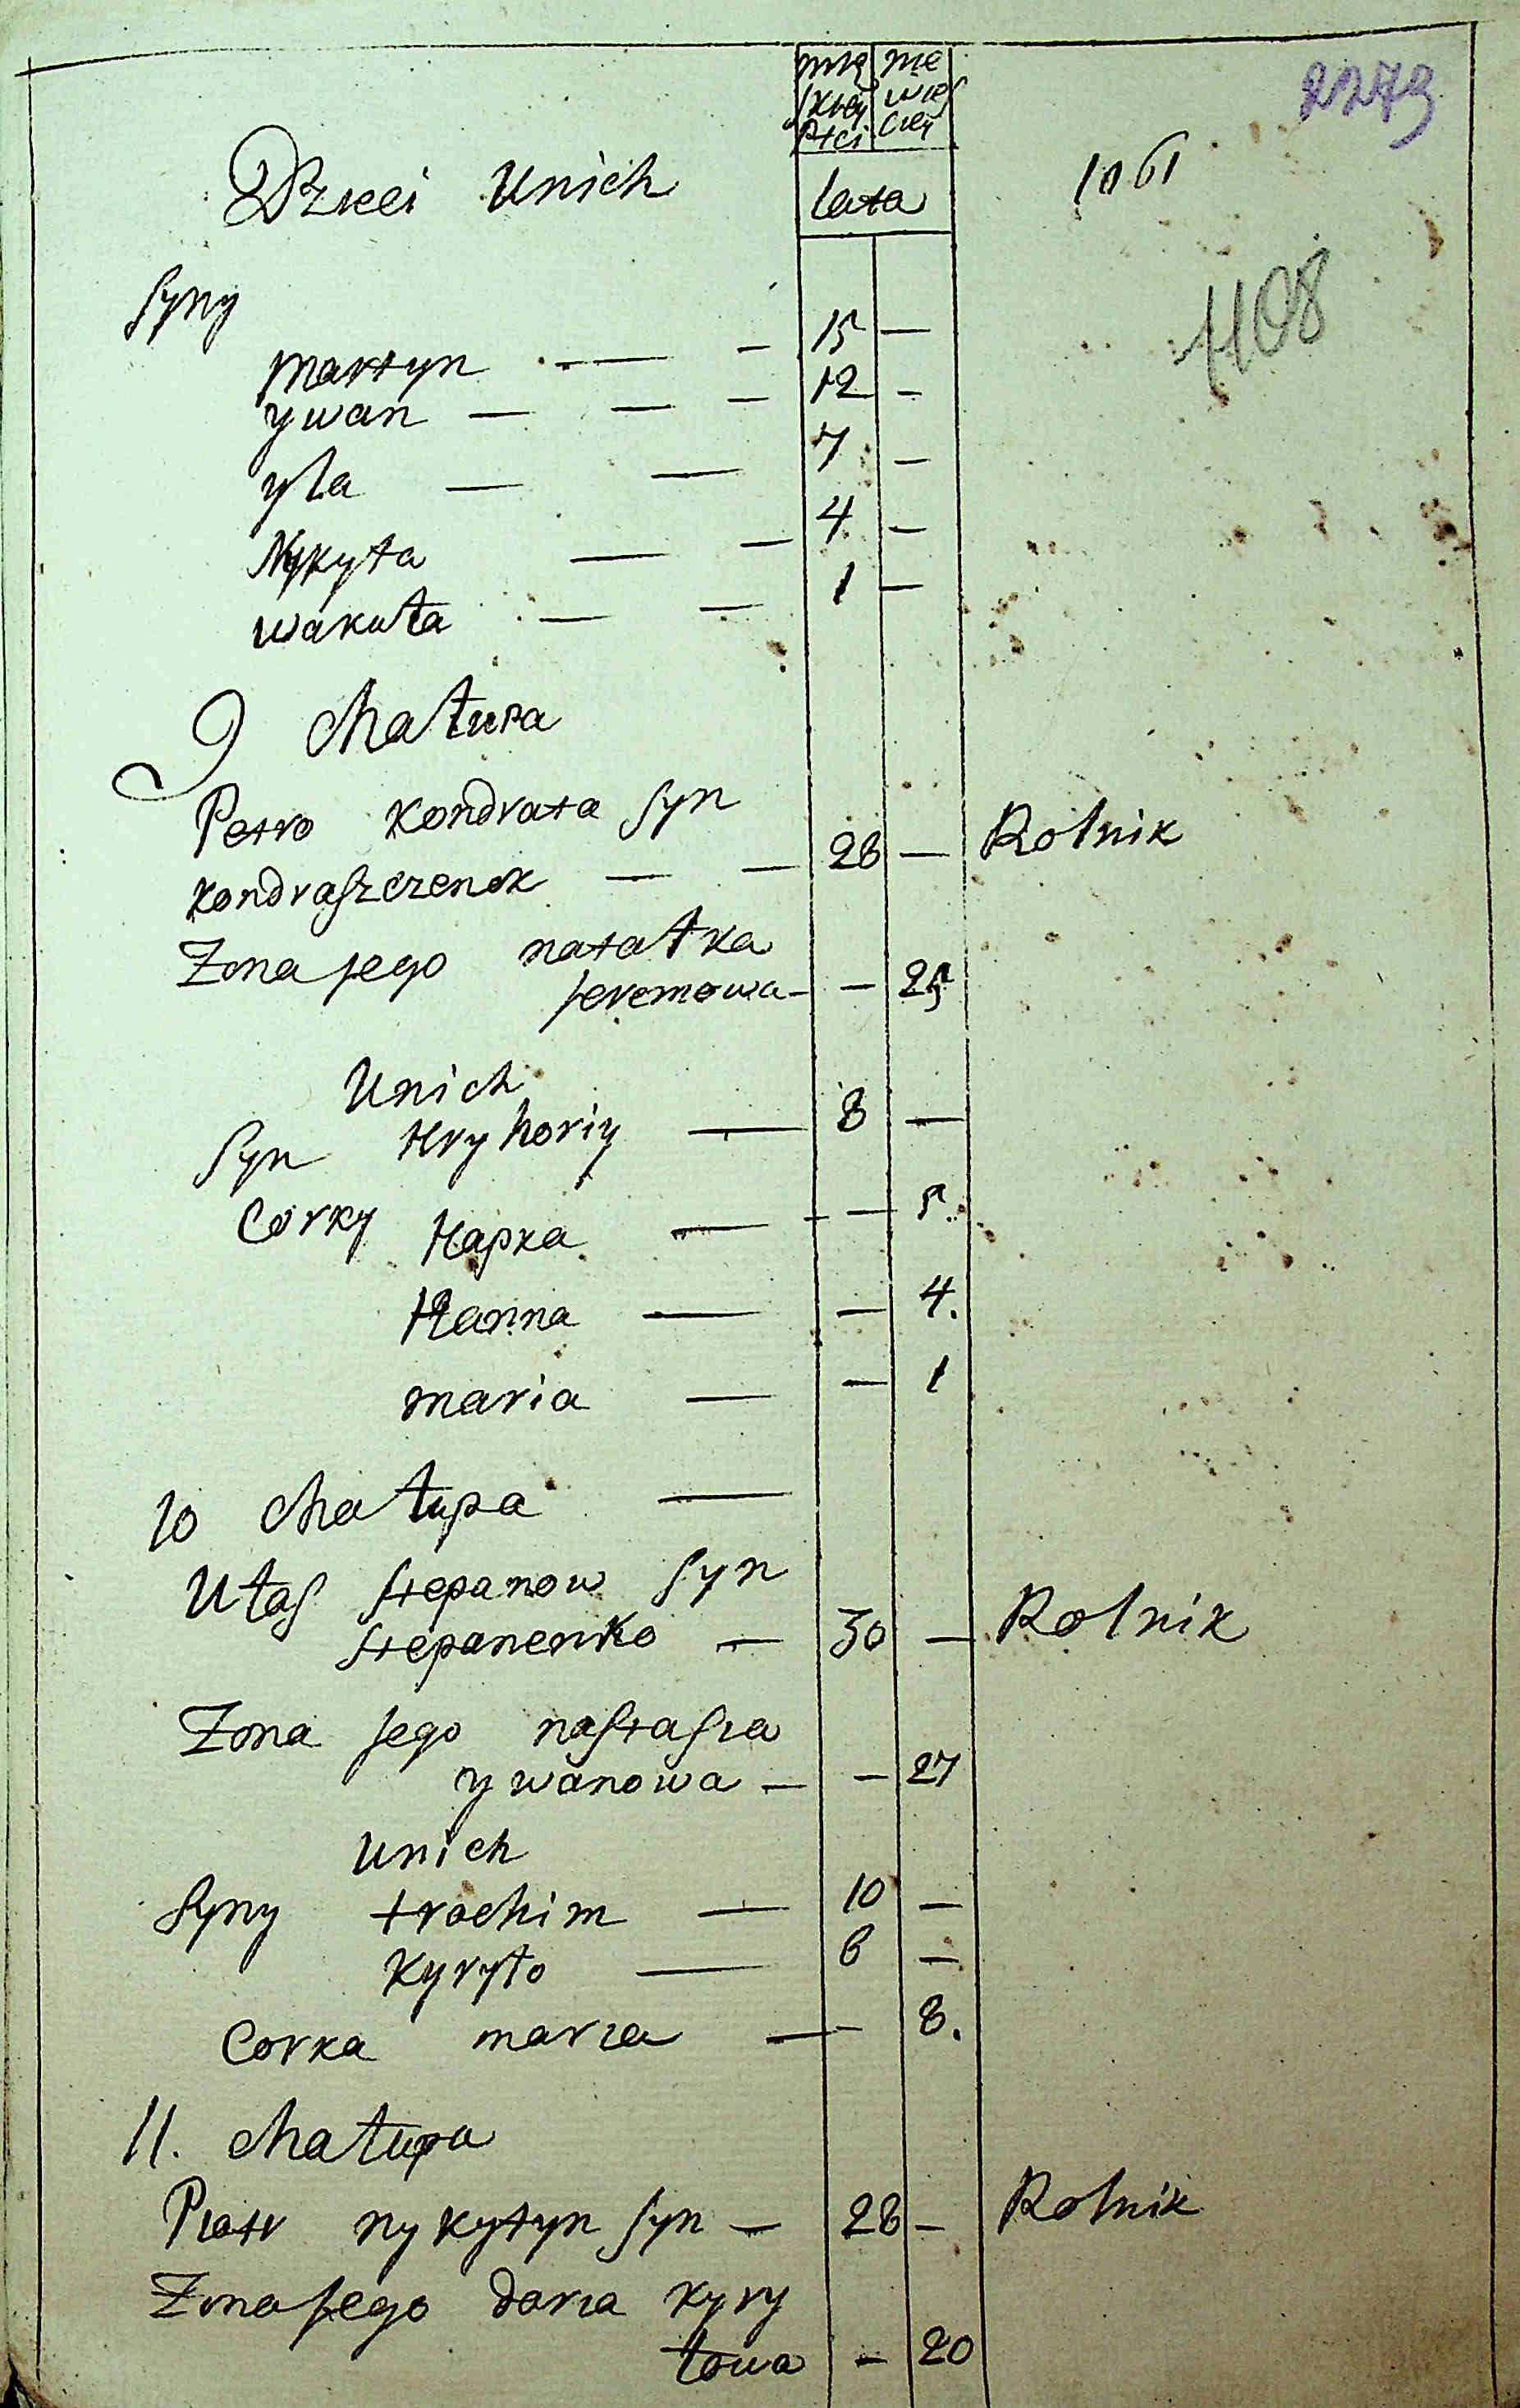 mię nie
skiey wies
Płci ciey
2279
Dzieci Unich lata 1061
Syny
1108
Martyn — — 15 —
ywan — — — 12 —
yla — — 7 —
Nykyta — — 4 —
wakuła — — 1 —
9 Chałupa
Petro Kondrata Syn
Kondraszczenok — — 28 — Rolnik
Zona jego natałka
jeremowa — — 25
Unich
Syn Hryhoriy — 8 —
Corky Hapka — — 5.
Hanna — — 4.
maria — — 1
10 Chałupa —
Ułas Stepanow Syn
Stepanenko — 30 — Rolnik
Zona jego nastasia
ywanowa — — 27
Unich
Syny trochim — 10 —
Kyryło — 6 —
Corka maria — — 8.
11. Chałupa
Piotr nykytyn Syn — 28 — Rolnik
Zona jego daria Kyry
łowa — 20